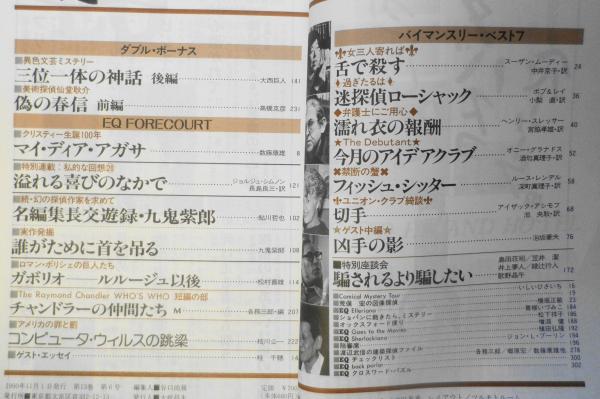 ダブル・ボーナス
■異色文芸ミステリー
三位一体の神話 後編 大西巨人 141
■美術探偵仙堂耿介
偽の春信 前編 高橋克彦 231
EQ FORECOURT
■クリスティー生誕100年
マイ・ディア・アガサ 数藤康雄 8
■特別連載:私的な回想28
溢れる喜びのなかで ジョルジュ・シムノン 長島良三・訳 121
■続・幻の探偵作家を求めて
名編集長交遊録・九鬼紫郎 鮎川哲也 102
■実作発掘
誰がために首を吊る 九鬼紫郎 108
■ロマン・ポリシェの巨人たち
ガボリオ――ルルージュ以後 松村喜雄 114
■The Raymond Chandler WHO'S WHO 短編の部
チャンドラーの仲間たち M 各務三郎・編 207
■アメリカの罪と罰
コンピュータ・ウィルスの跳梁 枝川公一 222
■ゲスト・エッセイ 桂 千穂 14
1990年11月1日発行 第13巻 第6号 編集人
バイマンスリー・ベスト7
女三人寄れば
舌で殺す スーザン・ムーディー 中井京子・訳 24
過ぎたるは
迷探偵ローシャック ポブ&レイ 小梨 直・訳 36
弁護士にご用心
濡れ衣の報酬 ヘンリー・スレッサー 宮脇孝雄・訳 40
★The Debutant★
今月のアイデアクラブ 52
禁断の蟹
フィッシュ・シッター ルース・レンデル 深町眞理子・訳 58
ユニオン・クラブ綺談
切手 アイザック・アシモフ 池 央耿・訳 68
★ゲスト中編★
凶手の影 泡坂妻夫 76
■特別座談会
騙されるより騙したい 島田荘司/笠井 潔 井上夢人/綾辻行人 歌野晶午 172
■Comical Mystery Tour いしいひさいち 16
■EQ Elleriana
■ショパンに飽きたら、ミステリー
■オックスフォード便り
■EQ Goes to the Movies
■EQ Sherlockiana
■陪審席 ジョン・L・ブリーン 194
■渡辺武信の建築探偵ファイル
■EQ チェックリスト 各務三郎/郷原宏/数藤康雄他
■EQ back porter 300
■EQ クロスワード・パズル 302